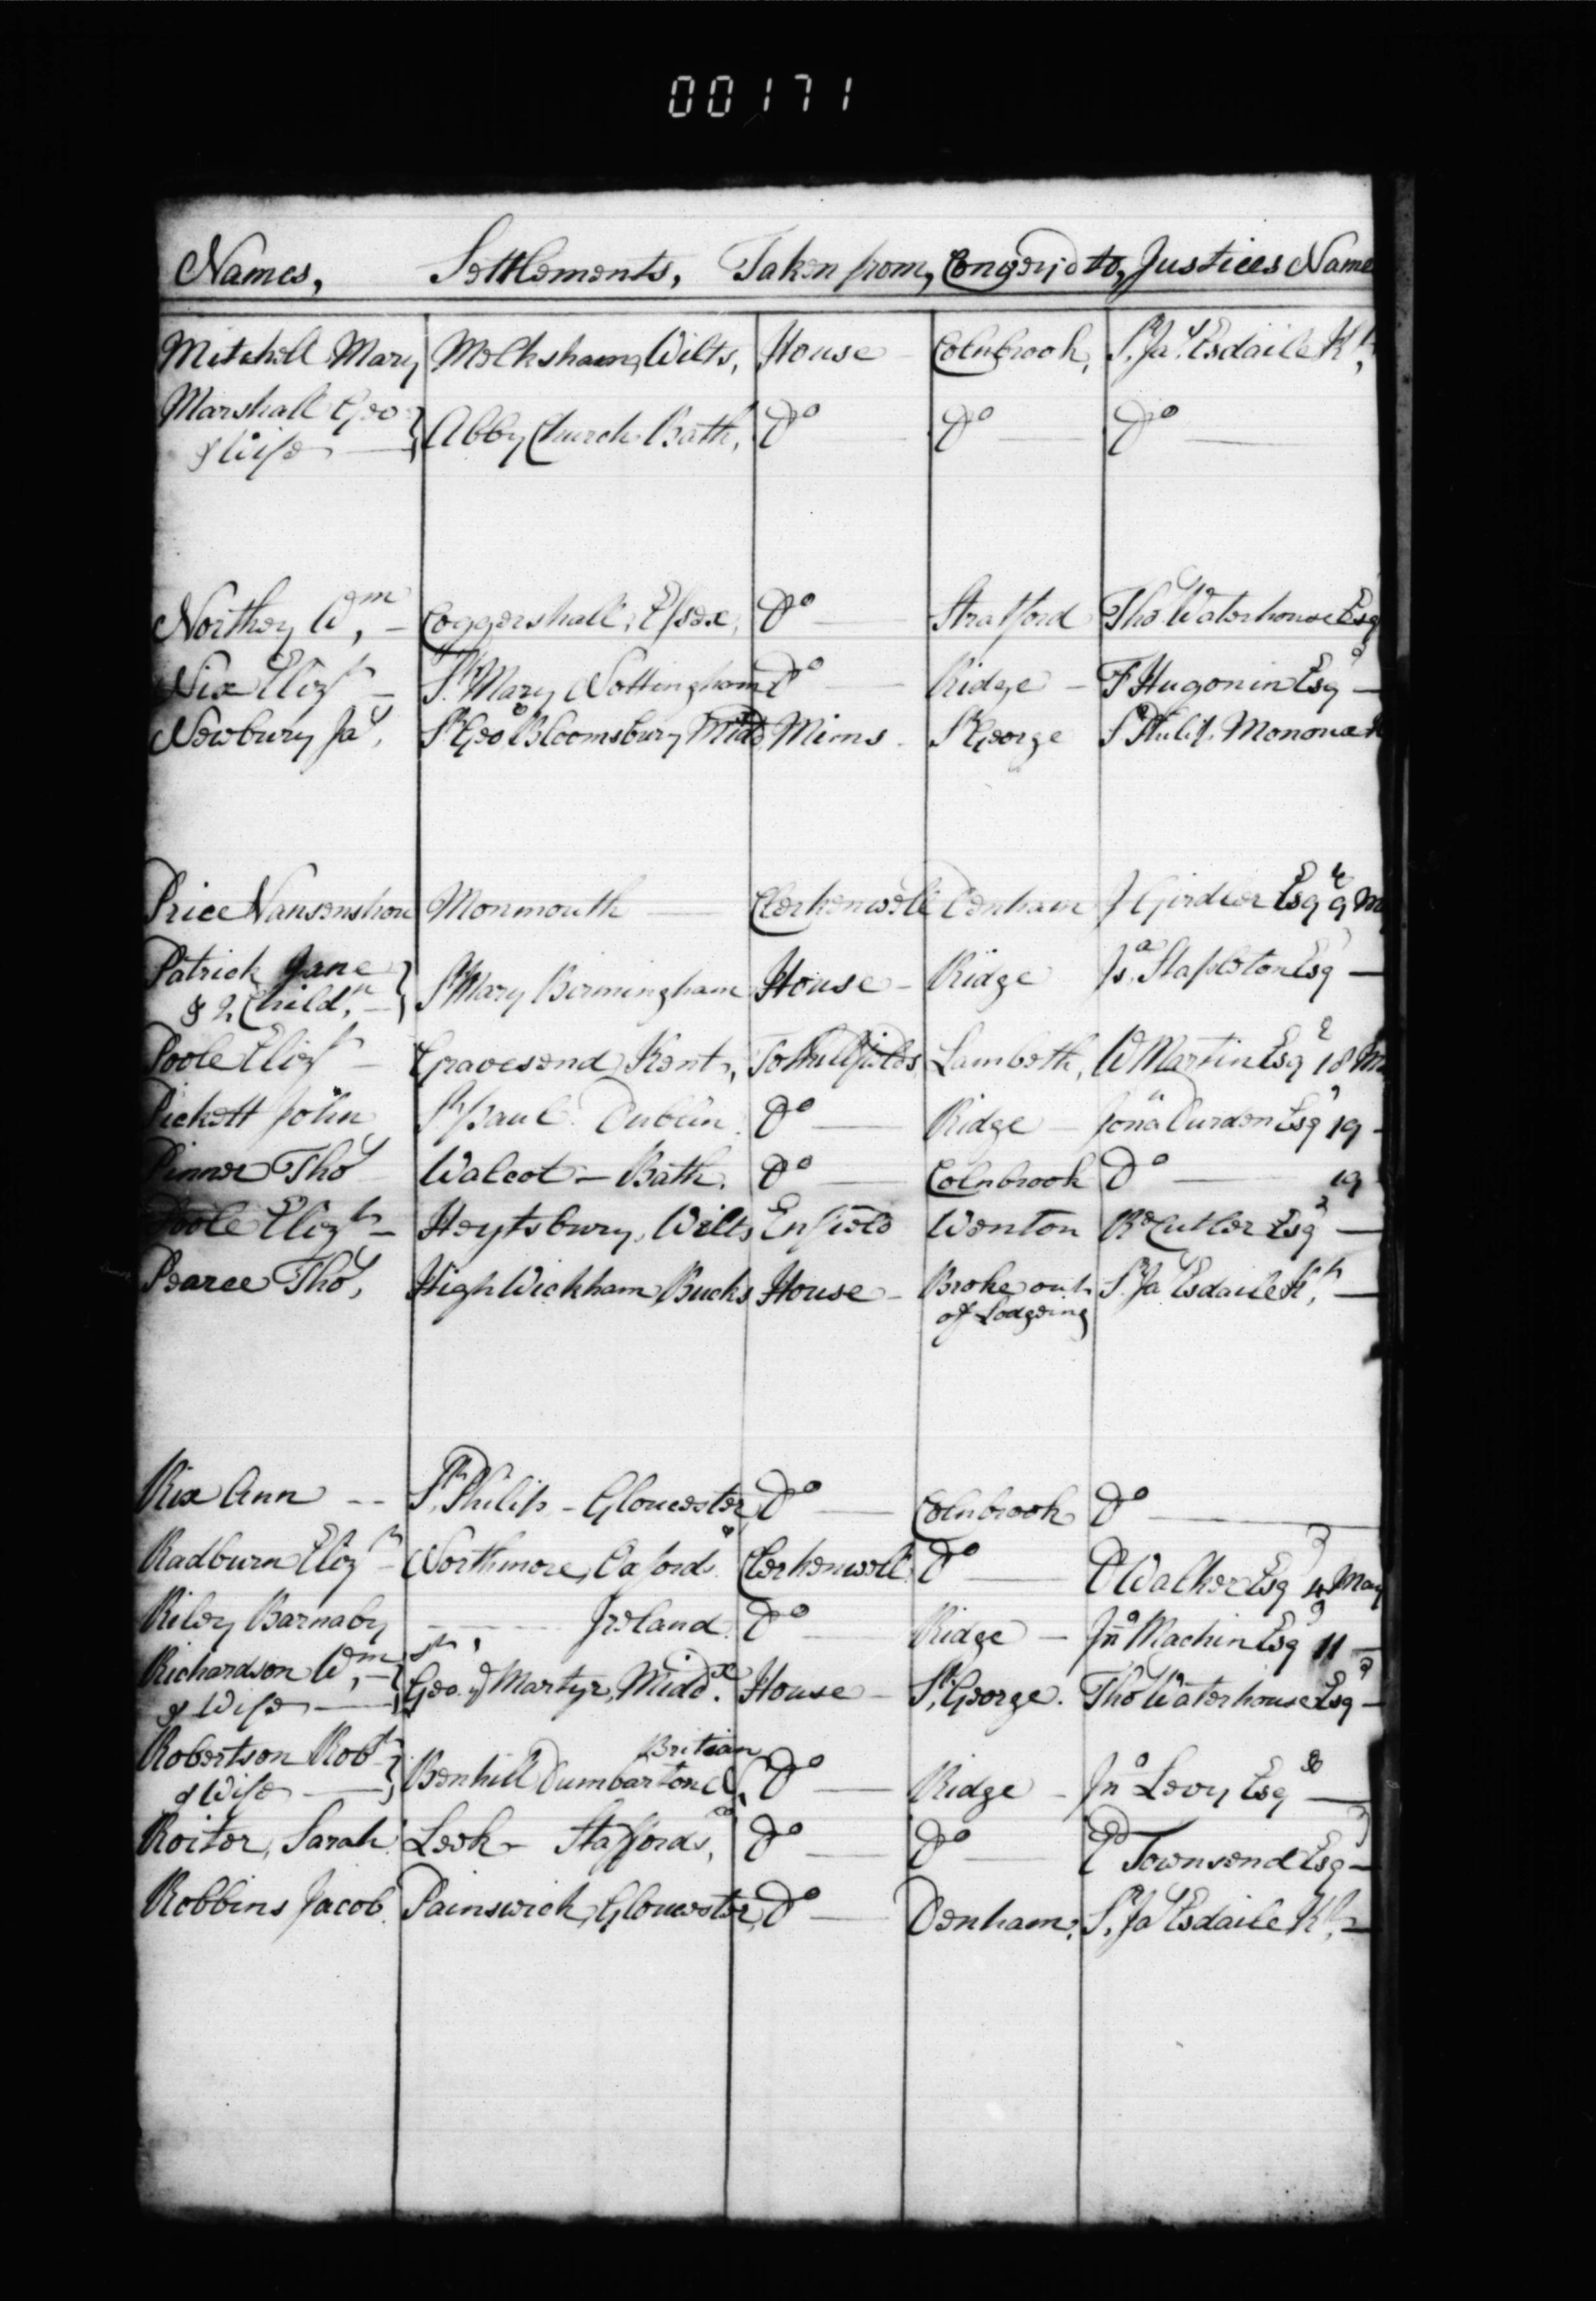 00171
Names, Settlements, Taken from, Convey'd to, Justices Name
Mitchell Mary Melksham, Wilts, House Colnbrook, Sr. Jas. Esdaile Kt,
Marshall Geo
& Wife Abby Church Bath, Do Do Do
Northey Wm, Coggershall, Essex, Do Stratford Thos Waterhouse Esq
Nix Elizth St. Mary Nottingham Do Ridge F Hugonin Esqr
Newbury Jas, St Geo Bloomsbury Middx Mims St George Sr Philip Monoux
Price Monmouth Clerkenwell Denham J Girdler Esqr 9 M
Patrick Jane
& 2 Childn, St Mary Birmingham House Ridge Js. Stapleton Esqr
Poole Elizth Gravesend Kent, Tothillfields, Lambeth, W Martin Esqr 18 M
Pickett John St Paul Dublin. Do Ridge Jona Durden Esqr 19
Pinner Thos Walcot - Bath. Do Colnbrook Do 19
Poole Elizth Heytsbury, Wilts Enfield Wenton Rd Cutler Esqr
Pearce Thos, High Wickham Bucks House Broke out Sr. Jas Esdaile Kt,
of Lodgeing
Rix Ann St. Philip - Gloucester, Do Colnbrook Do
Radburn Elizth Northmore, Oxfords. Clerkenwell. Do D Walker Esqr 4 May
Riley Barnaby Ireland. Do Ridge Jno Machin Esqr 11
Richardson Wm, St,
& Wife Geo. ye Martyr, Middx. House St. George. Thos Waterhouse Esqr
Robertson Robt Britian
& Wife Benhill Dumbarton Do Ridge Jno Levy Esqr
Roiter, Sarah Leek - Staffords, Do Do E Townsend Esqr
Robbins Jacob. Painswick, Gloucester, Do Denham, Sr. Jas Esdaile Kt,